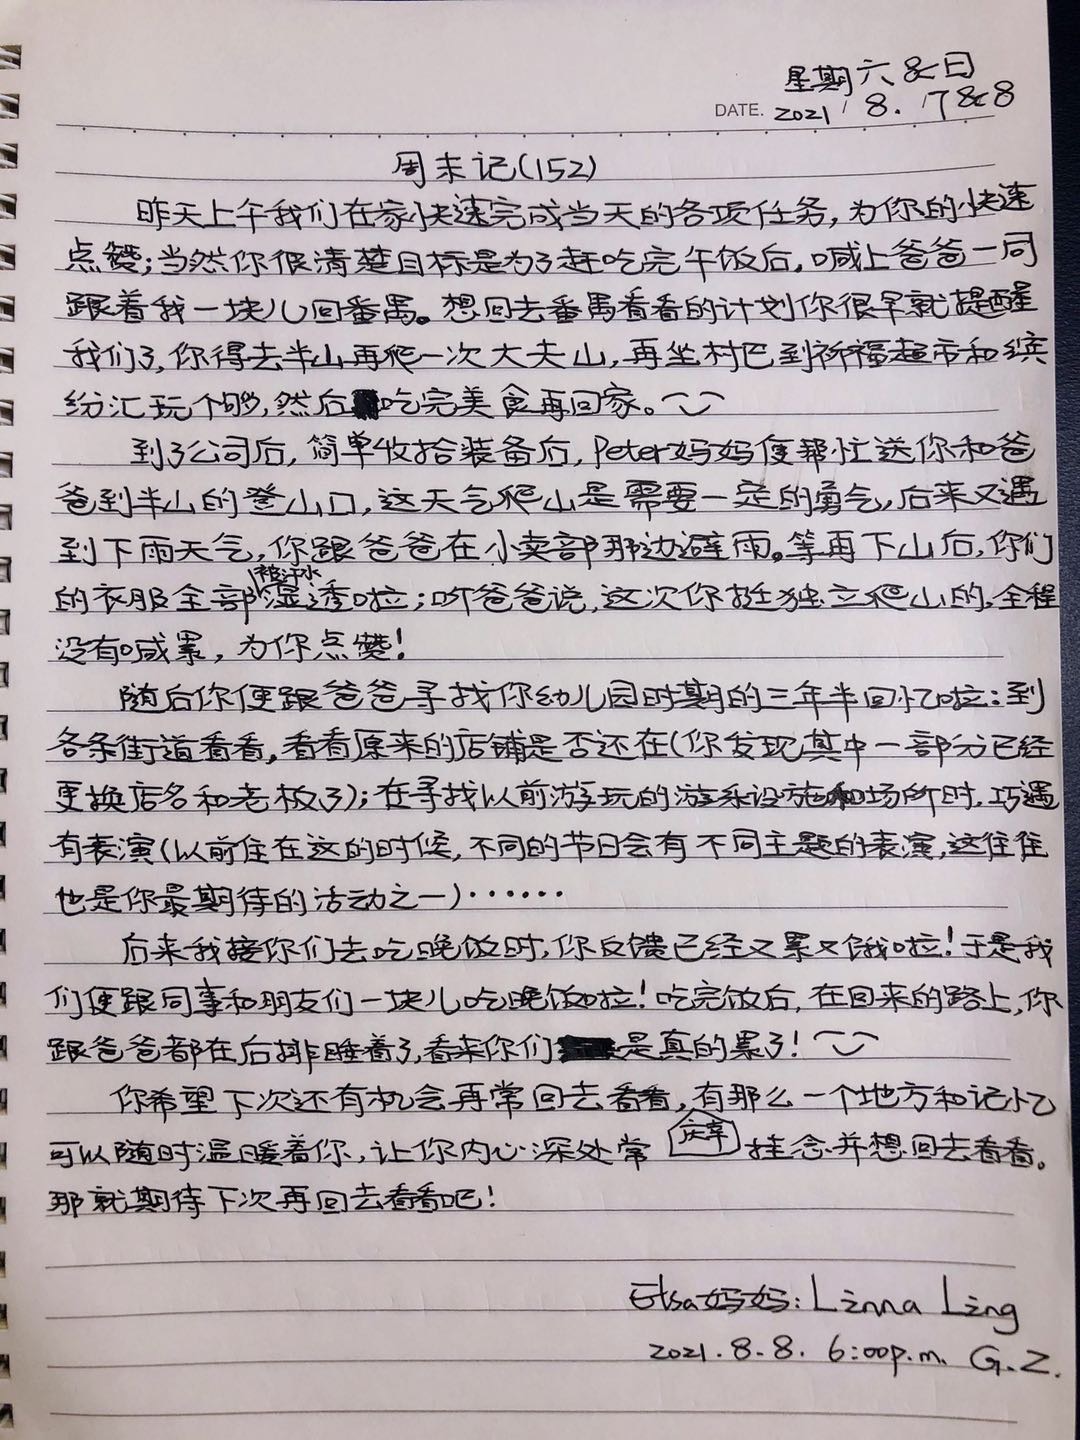 星期六&日
DATE. 2021/8.7&8
周末记(152)
昨天上午我们在家快速完成当天的各项任务,为你的快速
点赞;当然你很清楚目标是为了赶吃完午饭后,喊上爸爸一同
跟着我一块儿回番禺。想回去番禺看看的计划你很早就提醒
我们了,你得去半山再爬一次大夫山,再坐村巴到祈福超市和缤
纷汇玩个够,然后吃完美食再回家。
到了公司后,简单收拾装备后,Peter妈妈便帮忙送你和爸
爸到半山的登山口,这天气爬山是需要一定的勇气,后来又遇
到下雨天气,你跟爸爸在小卖部那边避雨。等再下山后,你们
的衣服全部被汗水湿透啦;听爸爸说,这次你挺独立爬山的,全程
没有喊累,为你点赞!
随后你便跟爸爸寻找你幼儿园时期的三年半回忆啦:到
各条街道看看,看看原来的店铺是否还在(你发现其中一部分已经
更换店名和老板了);在寻找以前游玩的游乐设施和场所时,巧遇
有表演(以前住在这的时候,不同的节日会有不同主题的表演,这往往
也是你最期待的活动之一)······
后来我接你们去吃晚饭时,你反馈已经又累又饿啦!于是我
们便跟同事和朋友们一块儿吃晚饭啦!吃完饭后,在回来的路上,你
跟爸爸都在后排睡着了,看来你们是真的累了!
你希望下次还有机会再常回去看看,有那么一个地方和记忆
可以随时温暖着你,让你内心深处常挂念并想回去看看。
那就期待下次再回去看看吧!
Elsa妈妈:Linna Ling
2021.8.8. 6:00p.m. G.Z.